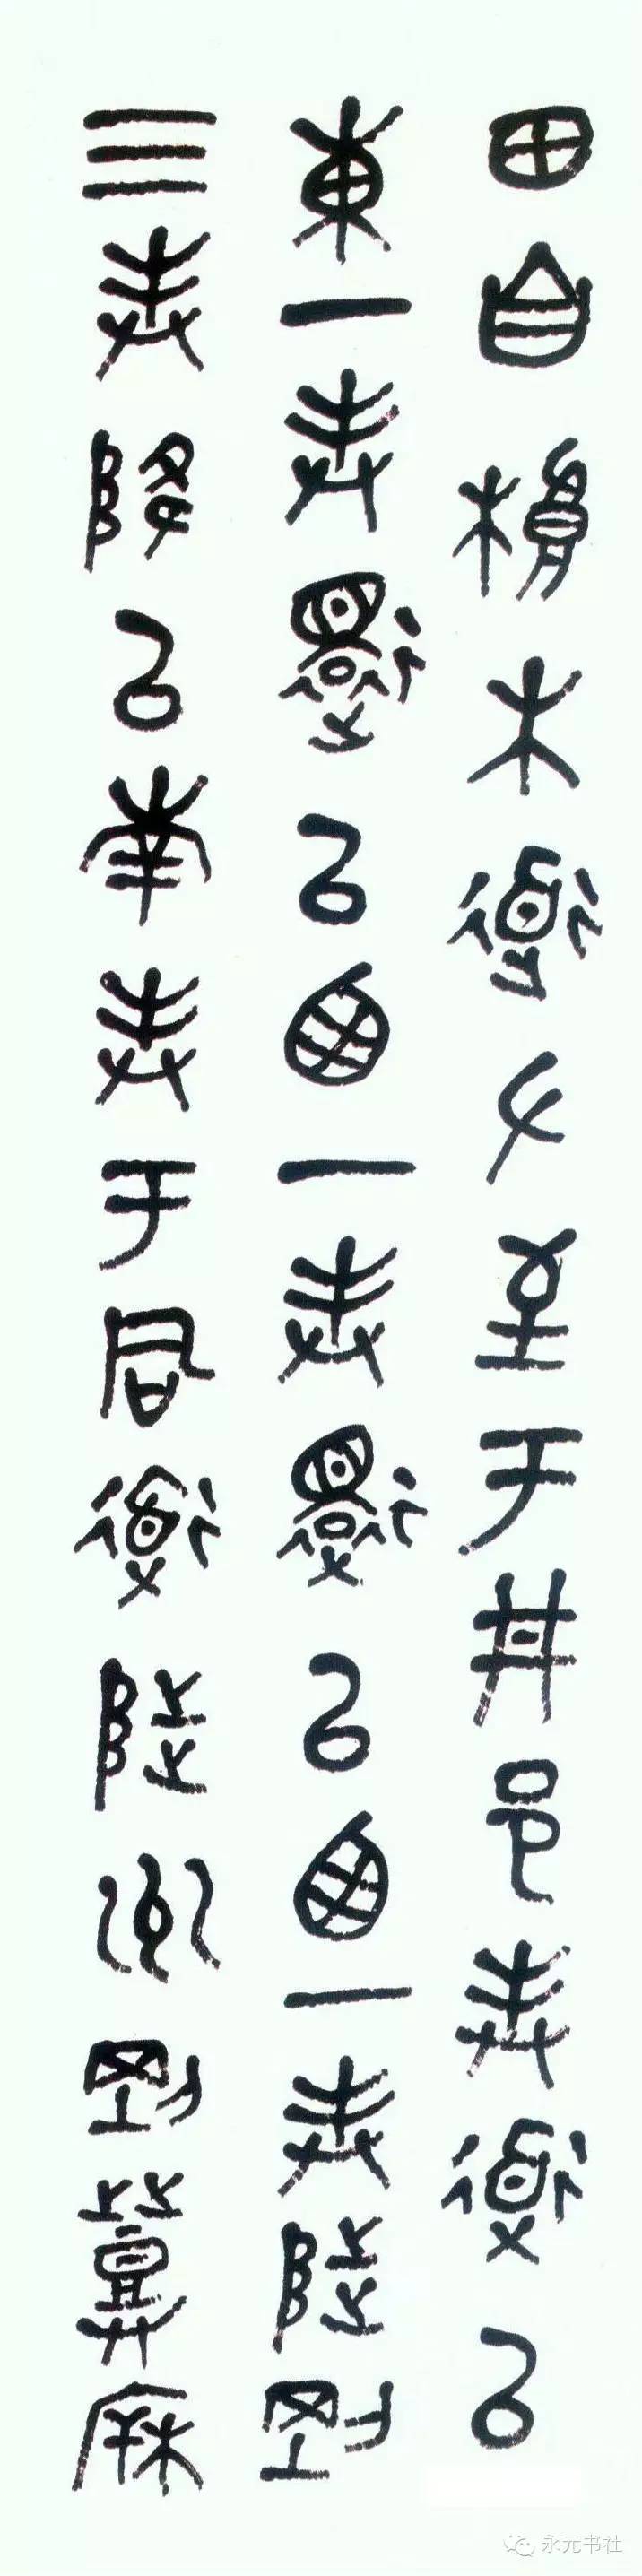 田自桹木道左至于井邑封道以
東一封還以西一封還以西一封陟剛
三封降以南封于同道陟州剛登柝
永元书社